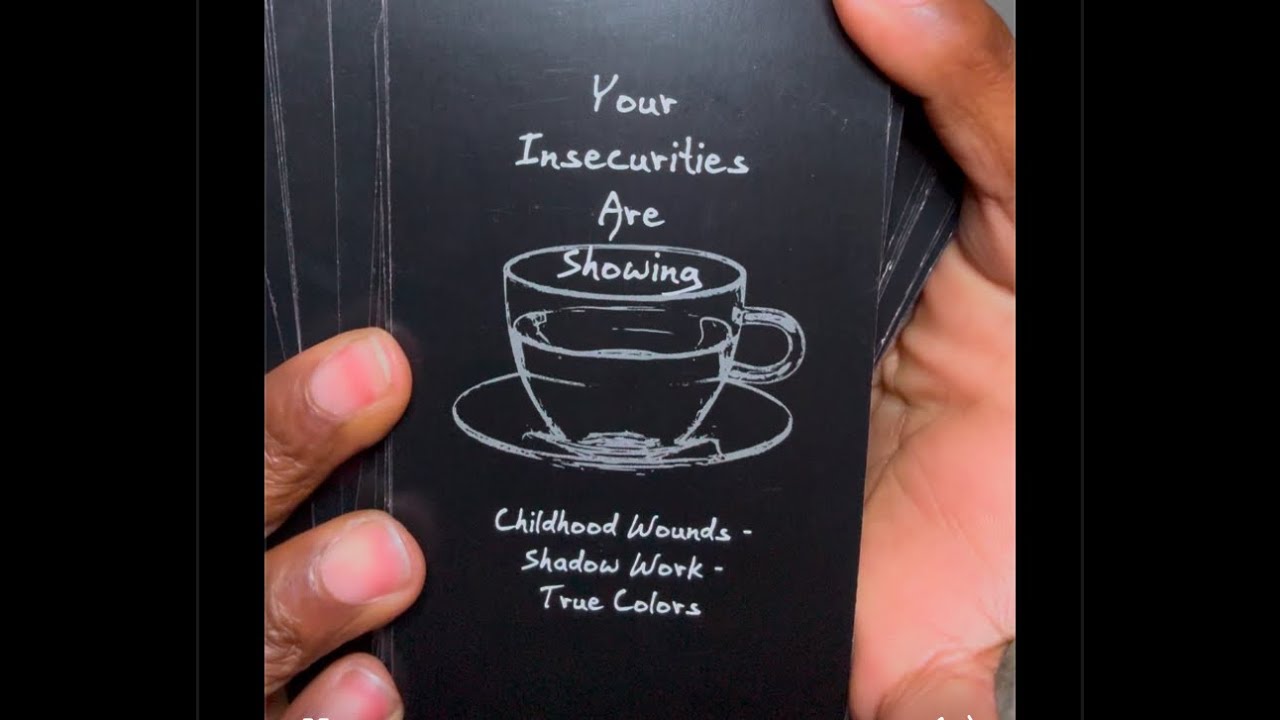 Your
Insecurities
Are
Showing
Childhood Wounds -
Shadow Work -
True Colors